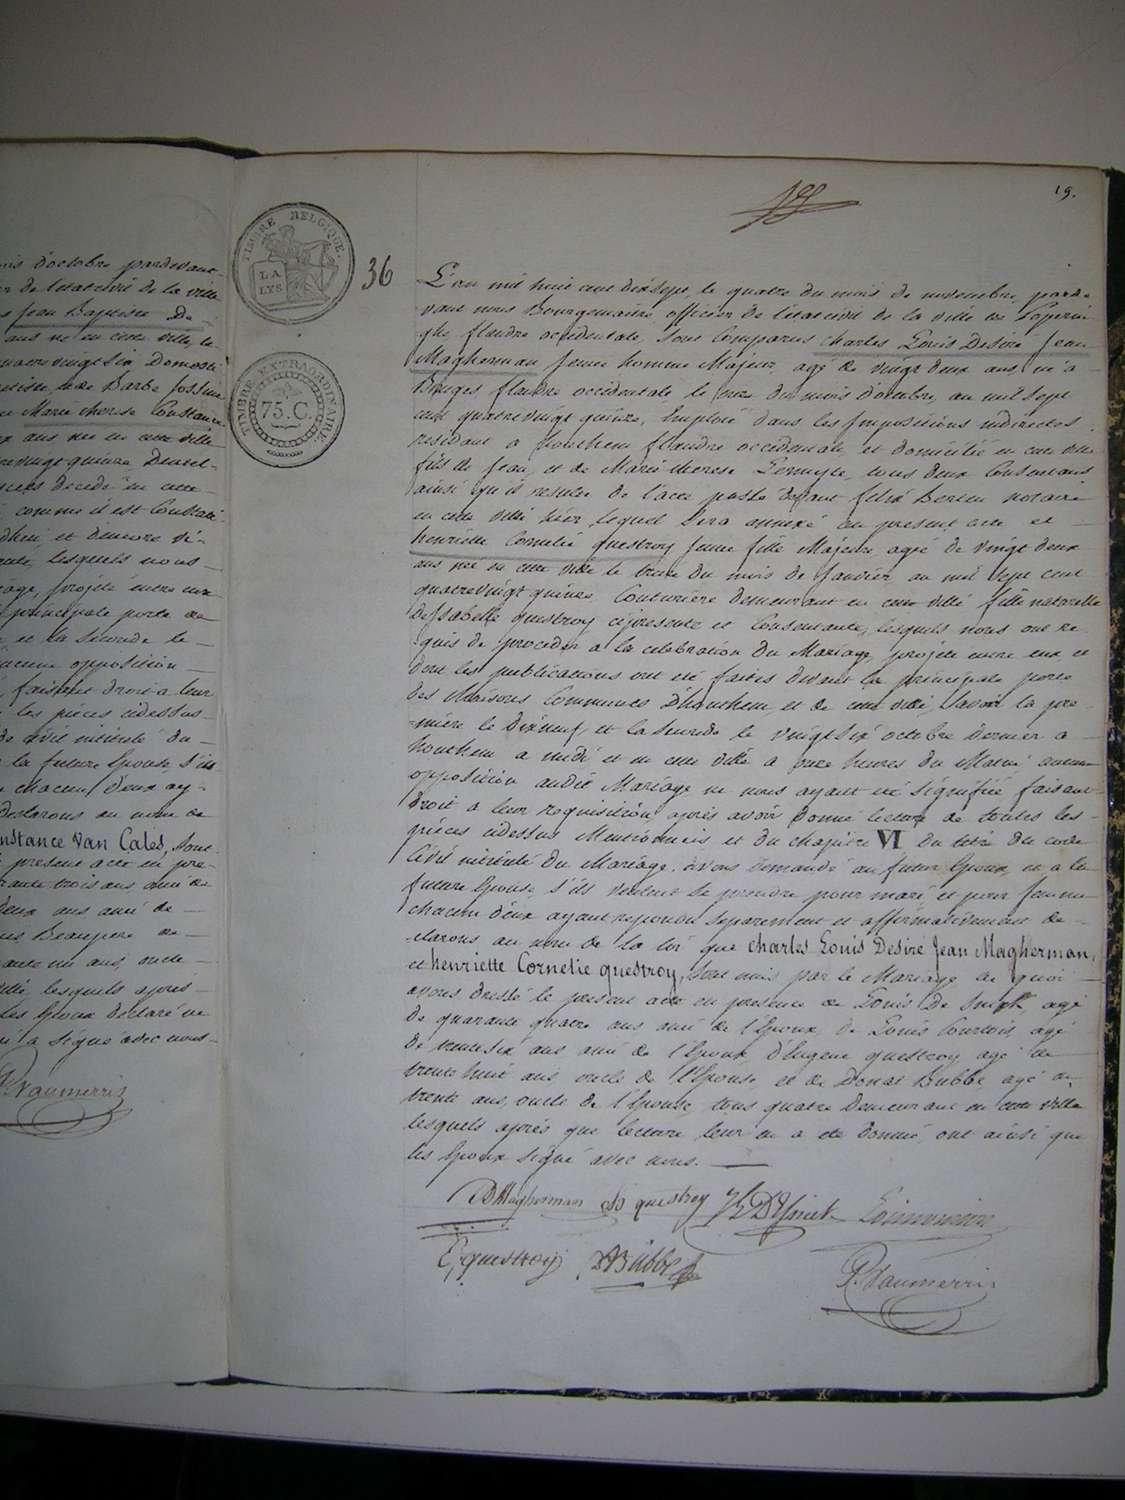 19.
TIMBRE BELGIQUE.
LA
LYS
TIMBRE EXTRAORDINAIRE
75.C.
36
mois d'octobre pardevant
de l'état civil de la ville
Jean Baptiste De
ans né en cette ville le
quatre vingt six Domesti
de Barbe Josse
Marie therese Constance
ans née en cette ville
vingt quinze Dentel-
décédé en cette
comme il est Constaté
et encore vi-
lesquels nous
projeté entre eux
principale porte de
et la seconde le
aucune opposition
faisant droit a leur
les pièces cidessus
civil intitulé du
la future Epouse, s'ils
chacun d'eux ay-
declarons au nom de
Constance Van Cales, sont
present acte en pre-
trois ans ami de
deux ans ami de
Beaupere de
un ans, oncle
lesquels après
les Epoux declaré ne
a signé avec nous.
L'an mil huit cent dix sept, le quatre du mois de novembre, parde
vant nous Bourgemaitre officier de l'état civil de la ville de Poperin
ghe flandre occidentale, sont Comparus charles Louis Desiré Jean
Magherman Jeune homme Majeur, agé de vingt deux ans, né a
Bruges flandre occidentale le du mois d'octobre, an mil sept
cent quatre vingt quinze, Emploié dans les Impositions indirectes
residant a houchem flandre occidentale, et domicilié en cette ville
fils de Jean, et de Marie therese tous deux Consentans
ainsi qu'il resulte de l'acte passé devant felix Berten notaire
en cette ville hier, lequel sera annexé au present acte et
henriette Cornelie questroy Jeune fille Majeure, agé de vingt deux
ans née en cette ville le treize du mois de Janvier an mil sept cent
quatre vingt quinze Couturière demeurant en cette ville fille naturelle
d'Isabelle questroy cipresente et Consentante, lesquels nous ont re
quis de proceder a la celebration du Mariage projeté entre eux et
dont les publications ont été faites devant la principale porte
des Maisons Communes D'houchem, et de cette ville, savoir la pre
mière le Dixneuf, et la seconde le vingt six octobre dernier a
houchem a midi et en cette ville a onze heures du Matin aucune
opposition audit Mariage ne nous ayant été signifiée faisant
droit a leur requisition, après avoir donné lecture de toutes les
pièces cidessus Mentionnées et du chapitre VI du titre du code
Civil intitulé du Mariage, avons demandé au futur Epoux, et a la
future Epouse, s'ils veulent se prendre pour mari et pour femme
chacun d'eux ayant repondu separement et affirmativement de-
clarons au nom de la loi que charles Louis Desiré Jean Magherman,
et henriette Cornelie questroy, sont unis par le Mariage de quoi
avons dressé le present acte en presence de Louis De agé
de quarante quatre ans ami de l'Epoux de Louis Courtois, agé
de trente six ans ami de l'Epoux d'Eugene questroy agé de
trente huit ans oncle de l'Epouse, et de Donat Bubbe agé de
trente ans, oncle de l'Epouse tous quatre demeurant en cette ville
lesquels après que lecture leur en a été donné, ont ainsi que
les Epoux signé avec nous.
Magherman questroy
E questroy Bubbe